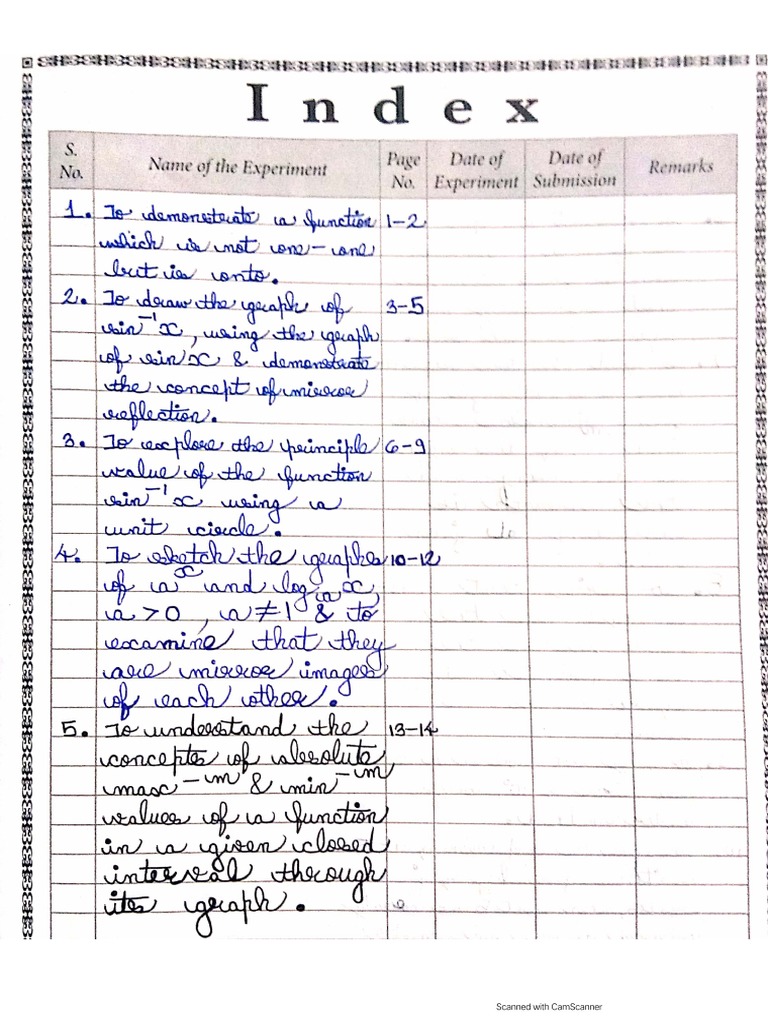 Index
S. No. Name of the Experiment Page No. Date of Experiment Date of Submission Remarks
1. To demonstrate a function 1-2
which is not one-one
but is onto.
2. To draw the graph of 3-5
sin⁻¹x, using the graph
of sin x & demonstrate
the concept of mirror
reflection.
3. To explore the principle 6-9
value of the function
sin⁻¹x using a
unit circle.
4. To sketch the graphs 10-12
of aˣ and logₐx,
a > 0, a ≠ 1 & to
examine that they
are mirror images
of each other.
5. To understand the 13-14
concepts of absolute
max-ᵐ & min-ᵐ
values of a function
in a given closed
interval through
its graph.
Scanned with CamScanner